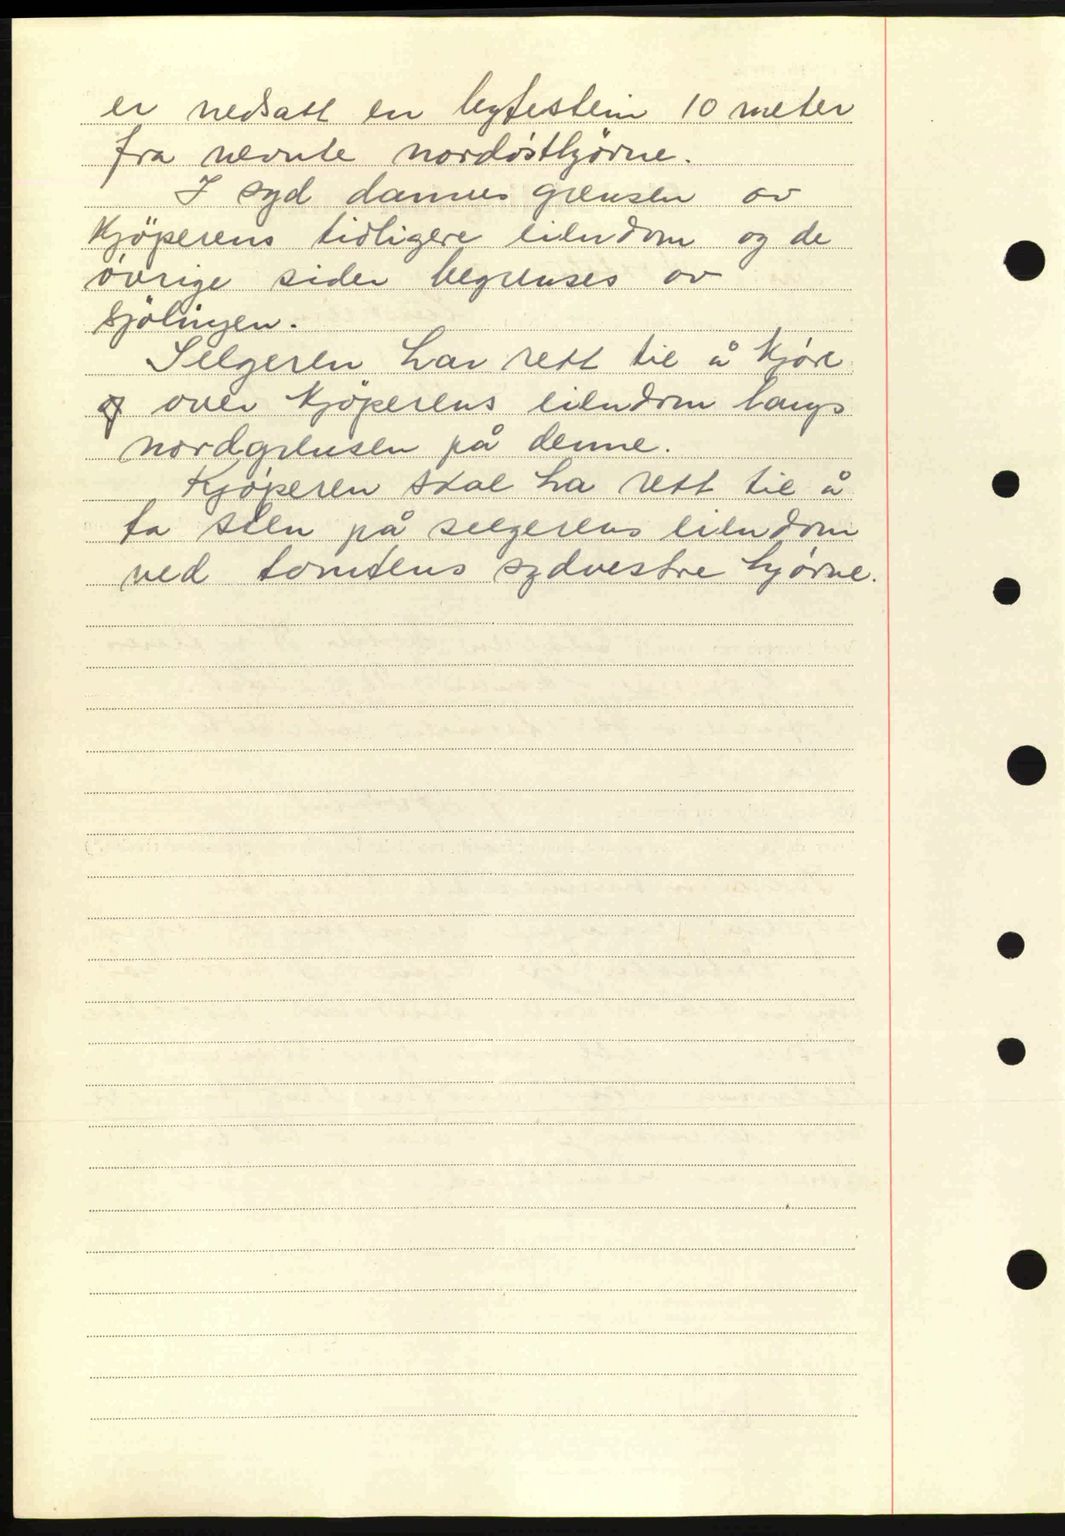 er nedsatt en bytestein 10 meter
fra nevnte nordösthjørne.
I syd dannes grensen av
Kjöperens tidligere eiendom og de
övrige sider begrenses av
Sjölingen.
Selgeren har rett til å kjöre
og over Kjöperens eiendom langs
nordgrensen på denne.
Kjöperen skal ha rett til å
ta sten på selgerens eiendom
ved tomtens sydvestre hjørne.